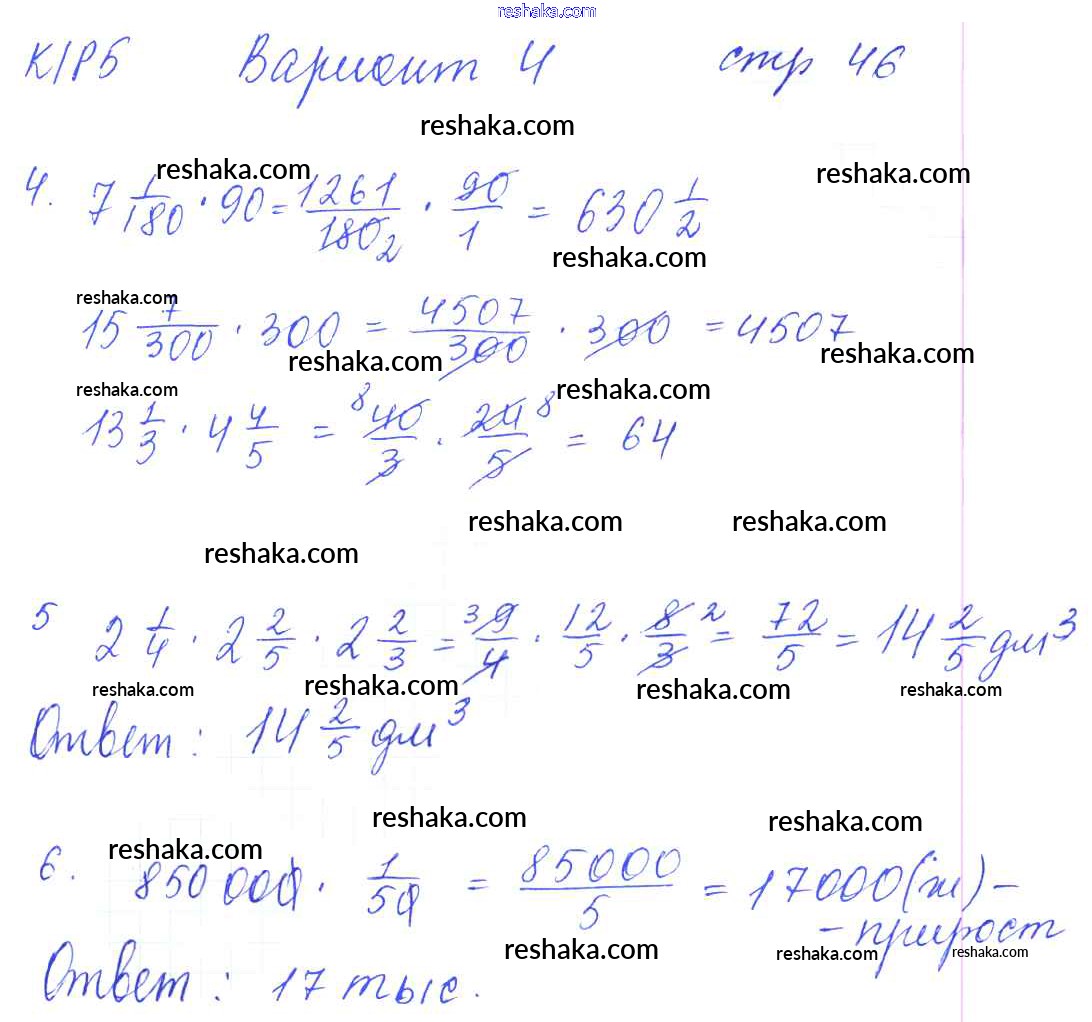 reshaka.com
К/Р5 Вариант 4 стр 46
reshaka.com
reshaka.com reshaka.com
4. 7 1/180 · 90 = 1261/180 2 · 90/1 = 630 1/2
reshaka.com
reshaka.com
15 7/300 · 300 = 4507/300 · 300 = 4507
reshaka.com reshaka.com
reshaka.com reshaka.com
13 1/3 · 4 4/5 = 8 40/3 · 24/5 8 = 64
reshaka.com reshaka.com
reshaka.com
5 2 1/4 · 2 2/5 · 2 2/3 = 3 9/4 · 12/5 · 8/3 2 = 72/5 = 14 2/5 дм³
reshaka.com reshaka.com reshaka.com reshaka.com
Ответ: 14 2/5 дм³
reshaka.com reshaka.com
reshaka.com
6. 850 000 · 1/50 = 85000/5 = 17000 (ж) –
– прирост
reshaka.com reshaka.com reshaka.com
Ответ: 17 тыс.